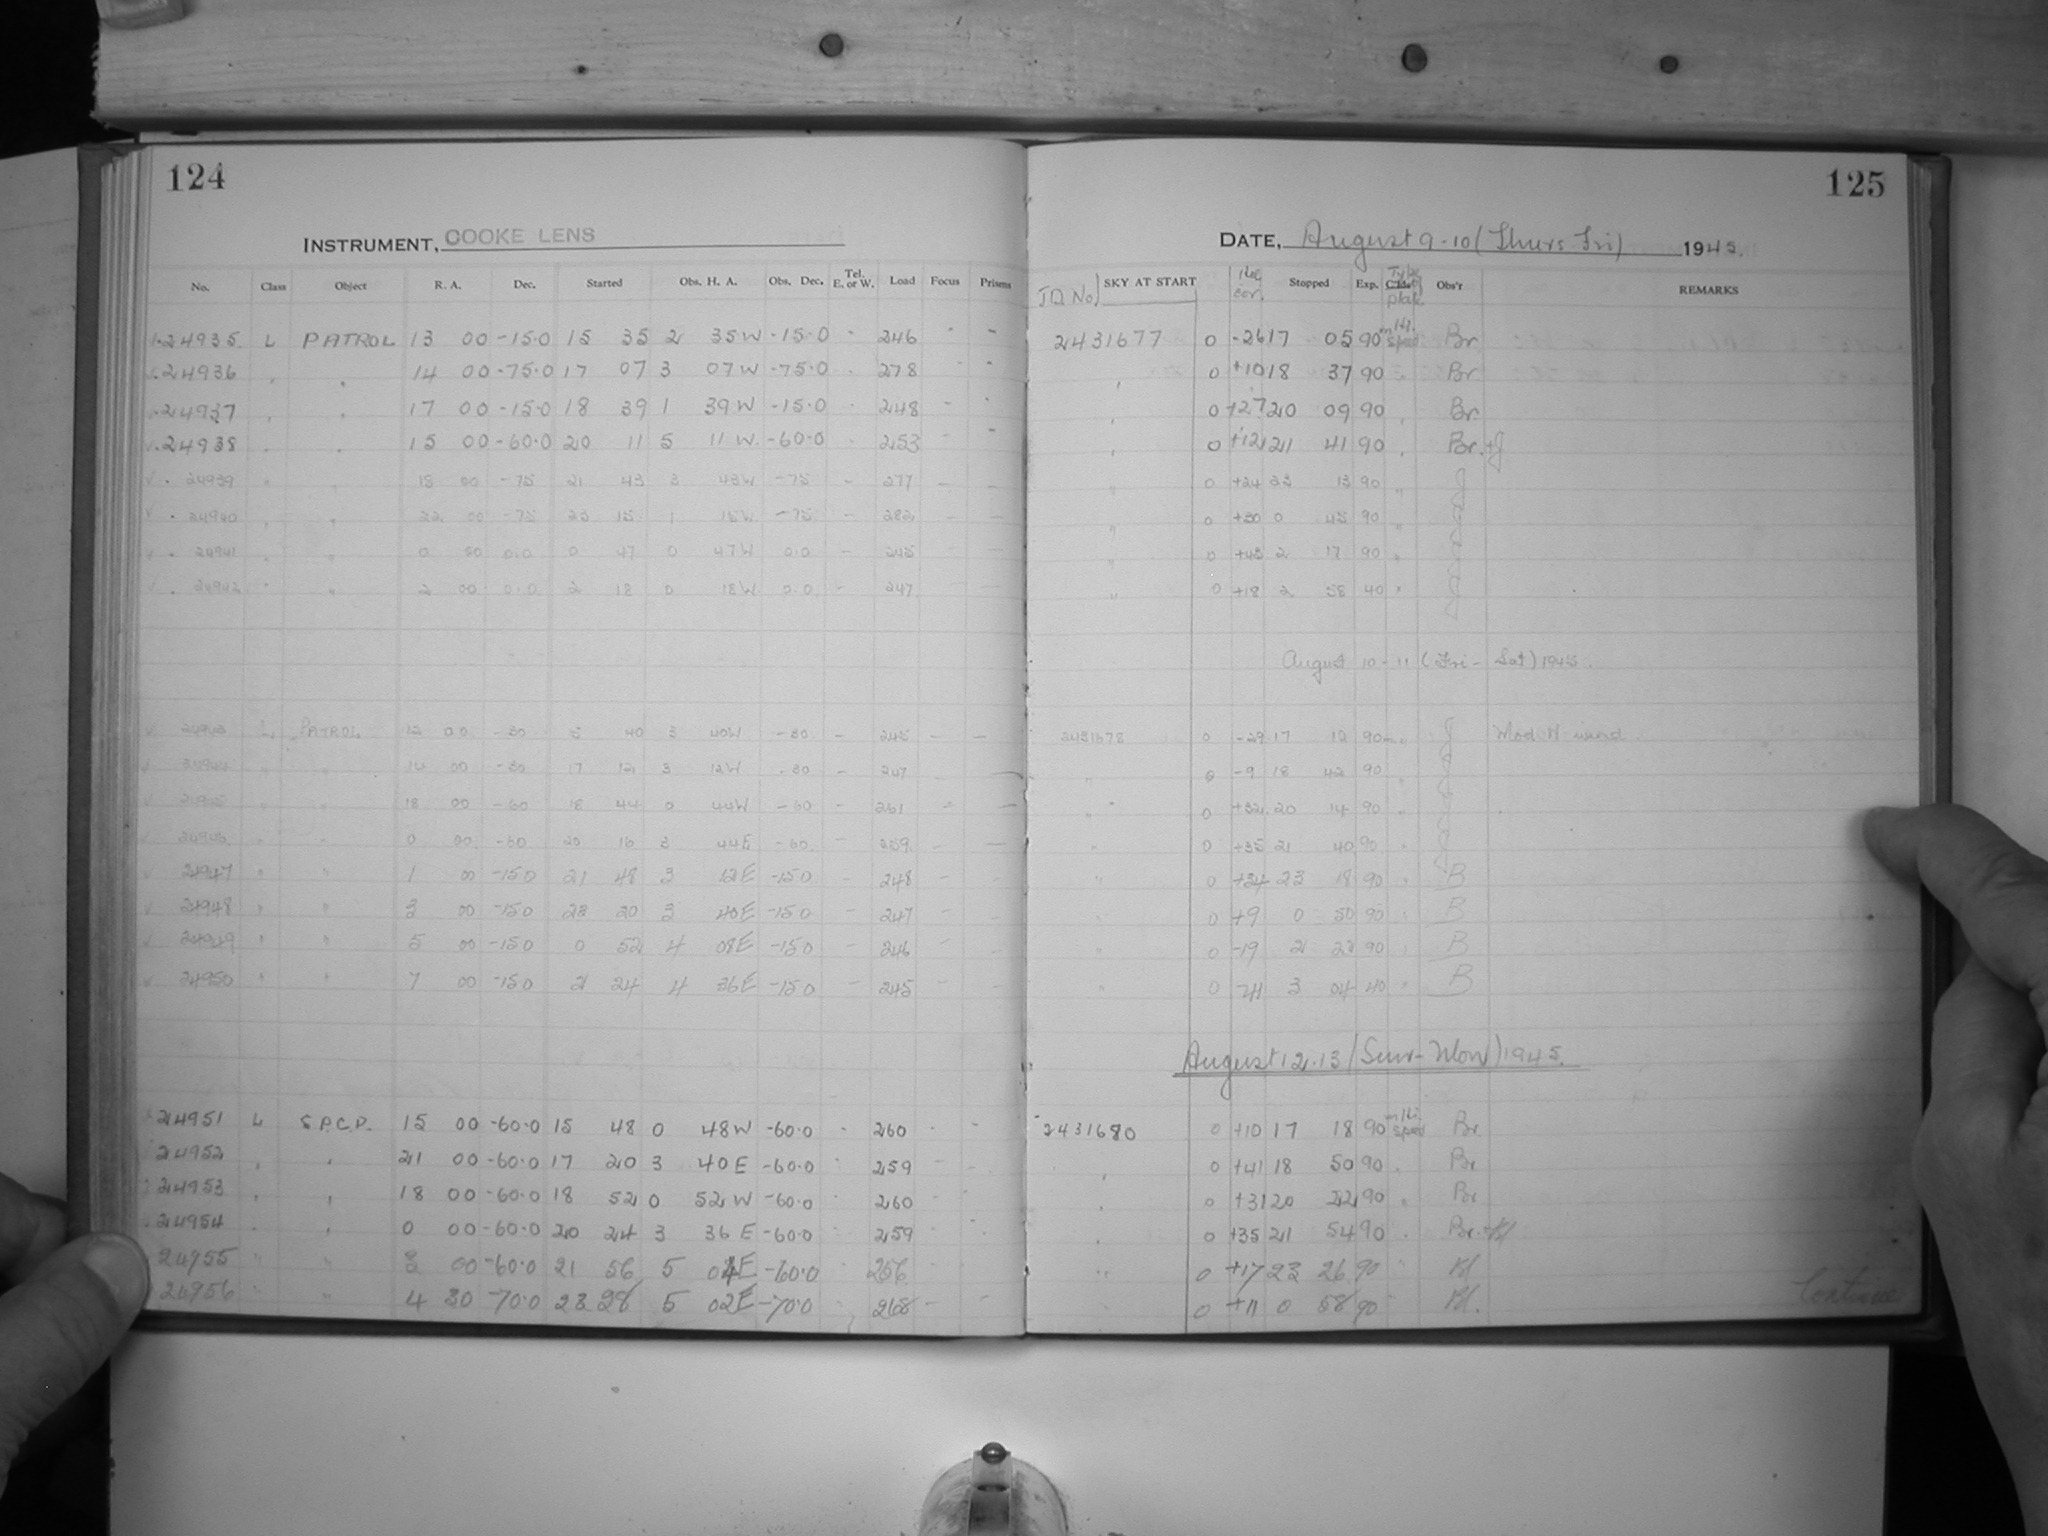 124
INSTRUMENT, COOKE LENS
No. Class Object R. A. Dec. Started Obs. H. A. Obs. Dec. Tel. E. or W. Load Focus Prisms
24935 L PATROL 13 00 -15.0 15 35 2 35W -15.0 - 246 - -
24936 " " 14 00 -75.0 17 07 3 07W -75.0 - 278 - -
24937 " " 17 00 -15.0 18 39 1 39W -15.0 - 248 - -
24938 " " 15 00 -60.0 20 11 5 11W -60.0 253 -
24939 " " 18 00 -75 21 43 3 43W -75 - 277 - -
24940 " " 22 00 -75 23 15 1 15W -75 - 282 - -
24941 " " 0 00 0.0 0 47 0 47W 0.0 - 245 - -
24942 " " 2 00 0.0 2 18 0 18W 0.0 - 247 - -
24943 L PATROL 12 00 -30 15 40 3 40W -30 - 245 - -
24944 " " 14 00 -30 17 12 3 12W -30 - 247 - -
24945 " " 18 00 -60 18 44 0 44W -60 - 261 - -
24946 " " 0 00 -60 20 16 3 44E -60 - 259 - -
24947 " " 1 00 -150 21 48 3 12E -150 - 248 - -
24948 " " 3 00 -150 23 20 3 40E -150 - 247 - -
24949 " " 5 00 -150 0 52 4 08E -150 - 246 - -
24950 " " 7 00 -150 2 24 4 36E -150 - 245 - -
24951 L S.P.C.P. 15 00 -60.0 15 48 0 48W -60.0 - 260 - -
24952 " " 21 00 -60.0 17 20 3 40E -60.0 259 - -
24953 " " 18 00 -60.0 18 52 0 52W -60.0 260 - -
24954 " " 0 00 -60.0 20 24 3 36E -60.0 259 - -
24955 " " 3 00 -60.0 21 56 5 04E -60.0 256 - -
24956 " " 4 30 -70.0 23 28 5 02E -70.0 268 - -
125
DATE, August 9-10 (Thurs-Fri) 1945.
JD No. SKY AT START Stopped Exp. Type of plate Obs'r REMARKS
2431677 0 -26 17 05 90m Hi. speed Br
" 0 +10 18 37 90 " Br
" 0 +27 20 09 90 " Br.
" 0 +12 21 41 90 " Br. + J
" 0 +24 23 13 90 " J
" 0 +30 0 45 90 " J
" 0 +43 2 17 90 " J
" 0 +18 2 58 40 " J
August 10-11 (Fri-Sat) 1945.
2431678 0 -29 17 12 90m " J Mod N wind.
" 0 -9 18 42 90 " J
" 0 +32 20 14 90 " J
" 0 +35 21 40 90 " J
" 0 +34 23 18 90 " B
" 0 +9 0 50 90 " B
" 0 -19 2 22 90 " B
" 0 -41 3 04 40 " B
August 12-13 (Sun-Mon) 1945.
2431680 0 +10 17 18 90m Hi. speed Br
" 0 +41 18 50 90 " Br
" 0 +31 20 22 90 " Br
" 0 +35 21 54 90 " Br. + Bl
" 0 +17 23 26 90 " Bl
" 0 +11 0 58 90 " Bl.
Continue